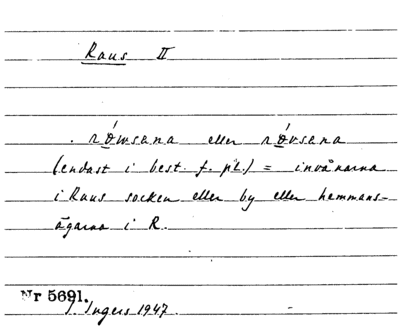 Raus II
. rówsana eller róvsana
(endast i best. f. pl.) = invånarna
i Raus socken eller by eller hemmans-
ägarna i R.
Nr 5691.
I. Ingers 1947.